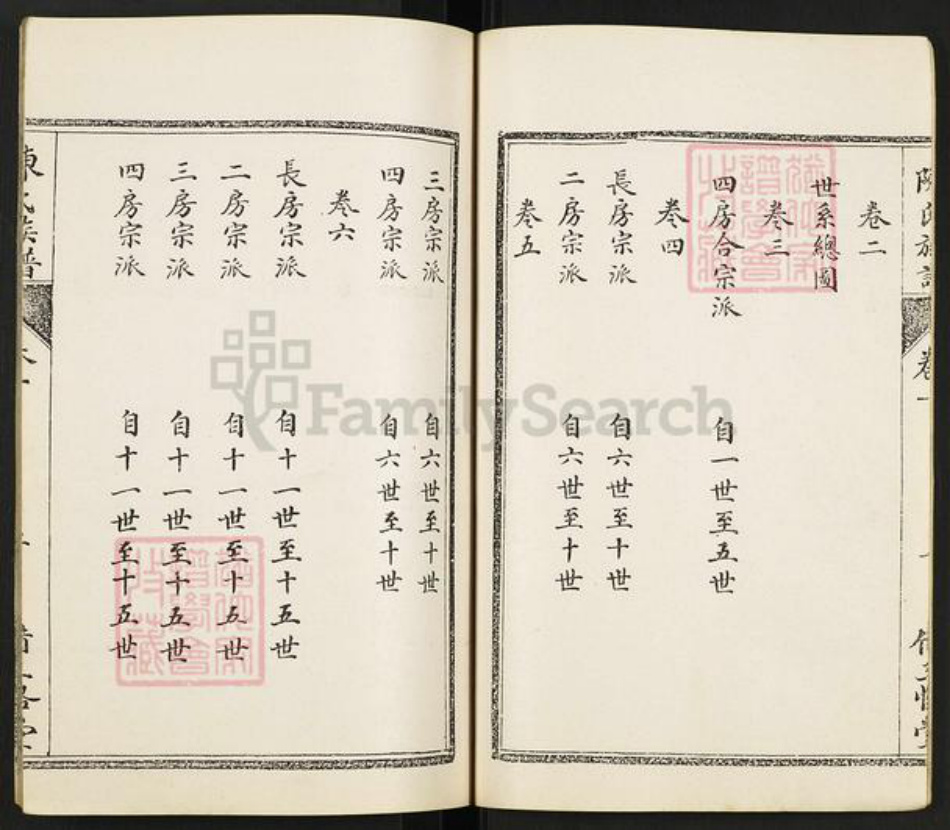 陳氏族譜
卷二
世系總圖
卷三
四房合宗派 自一世至五世
卷四
長房宗派 自六世至十世
二房宗派 自六世至十世
卷五
三房宗派 自六世至十世
四房宗派 自六世至十世
卷六
長房宗派 自十一世至十五世
二房宗派 自十一世至十五世
三房宗派 自十一世至十五世
四房宗派 自十一世至十五世
陳氏族譜
FamilySearch